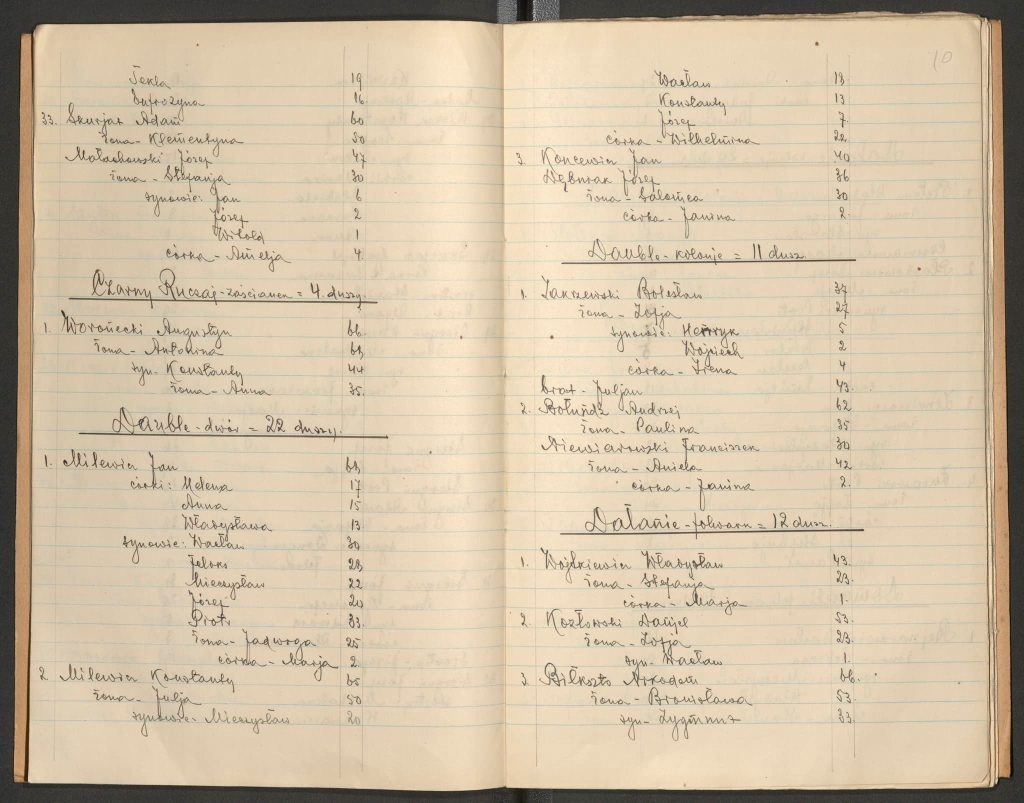 Tekla 19
Eufrozyna 16.
33. Skurjat Adam 60
żona - Klementyna 50
Małachowski Józef 47
żona - Stefanja 30
synowie: Jan 6
Józef 2
Witold 1
córka - Amelja 4.
Czarny Ruczaj - zaścianek = 4. duszy.
1. Woronecki Augustyn 66.
żona - Antonina
syn - Konstanty 44
żona - Anna 35.
Dauble - dwór = 22 duszy.
1. Milewicz Jan
córki: Helena 17
Anna 15
Władysława 13
synowie: Wacław 30
Feliks 28,
Mieczysław 22
Józef 20
Piotr 33.
żona - Jadwiga 25
córka - Marja 2.
2 Milewicz Konstanty 65
żona - Julja 50
synowie - Mieczysław 20
10
Wacław 18
Konstanty 13
Józef 7
córka - Wilhelmina 22
3. Koncewicz Jan 40
Dęburak Józef 36
żona - Salomea 30
córka - Janina 2.
Dauble - kolonje = 11 dusz.
1. Zakrzewski Bolesław 37
żona - Zofja 27
synowie: Henryk 5
Wojciech 2
córka - Irena 4
brat - Juljan 43.
2. Andrzej 62
żona - Paulina 35
Niewiarowski Franciszek 30
żona - Aniela 42
córka - Janina 2.
Dałanie - folwark = 12 dusz.
1. Wojtkiewicz Władysław 43.
żona - Stefanja 23.
córka - Marja 1.
2. Kozłowski Danjel 53.
żona - Zofja 23.
syn - Wacław 1.
3. Bilkszto Arkadem 66.
żona - Bronisława 53.
syn - Zygmunt 33.